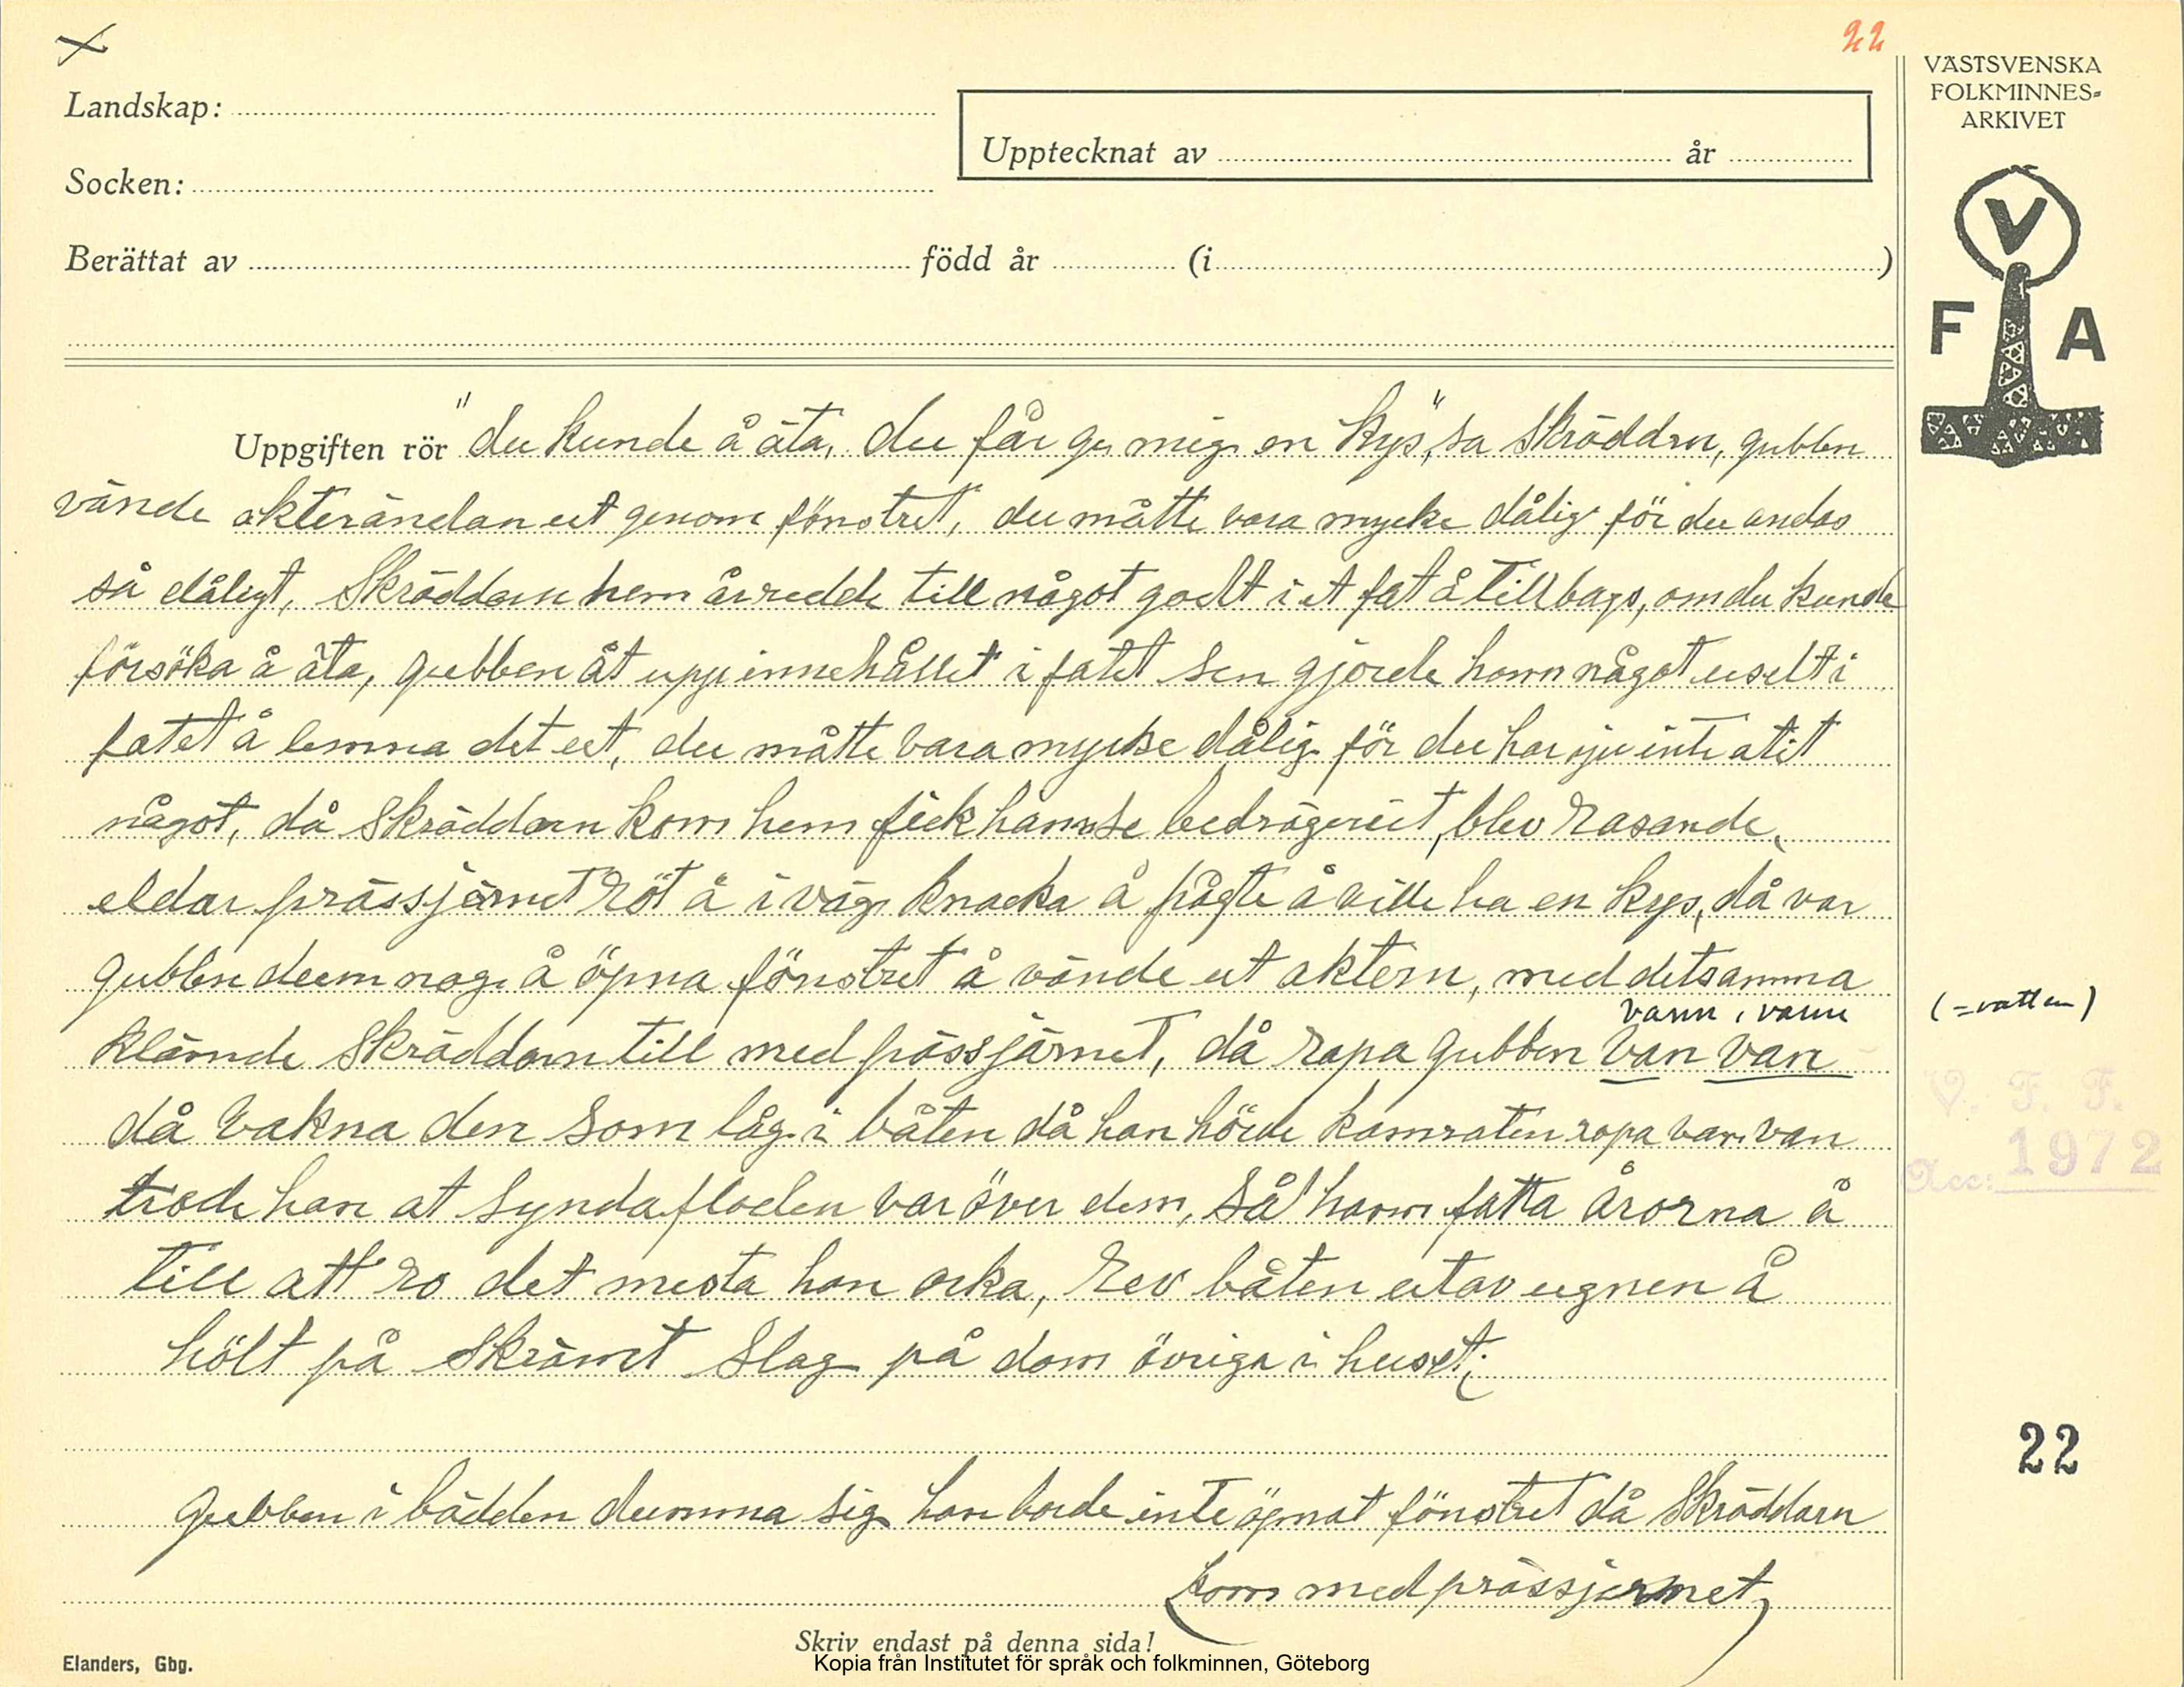 22
VÄSTSVENSKA
FOLKMINNES-
ARKIVET
Landskap:
Upptecknat av år
Socken:
Berättat av född år (i )
V
F A
Uppgiften rör "du kunde å äta, du får ge mig en kys", sa skräddrn, gubben
vände akterändan ut genom fönstret, du måtte vara mycke dålig för du andas
så dåligt, Skräddarn hem årredde till något godt i et fat å tillbags, om du kunde
försöka å äta, gubben åt upp innehållet i fatet sen gjorde hann något uselt i
fatet å lemna det ut, du måtte vara mycke dålig för du har ju inte atit
något, då Skräddarn kom hem fick hann se bedrägeriet, blev rasande,
eldar prässjärnet röt å iväg knacka å frågte å ville ha en kys, då var
gubben dum nog å öpna fönstret å vände ut aktern, med detsamma
vann, vann (=vatten)
klämde Skräddarn till med prässjärnet, då ropa gubben van van
då vakna den som låg i båten då han hörde kamraten ropa van van
trode han at syndafloden var över dem, så hann fatta årorna å
till att ro det mesta han orka, rev båten utav ugnen å
hölt på skrämt slag på dom övriga i huset;
V. F. F.
Acc: 1972
22
Gubben i bädden dumma sig han borde inte öpnat fönstret då Skräddarn
kom med prässjernet,
Skriv endast på denna sida!
Elanders, Gbg.
Kopia från Institutet för språk och folkminnen, Göteborg